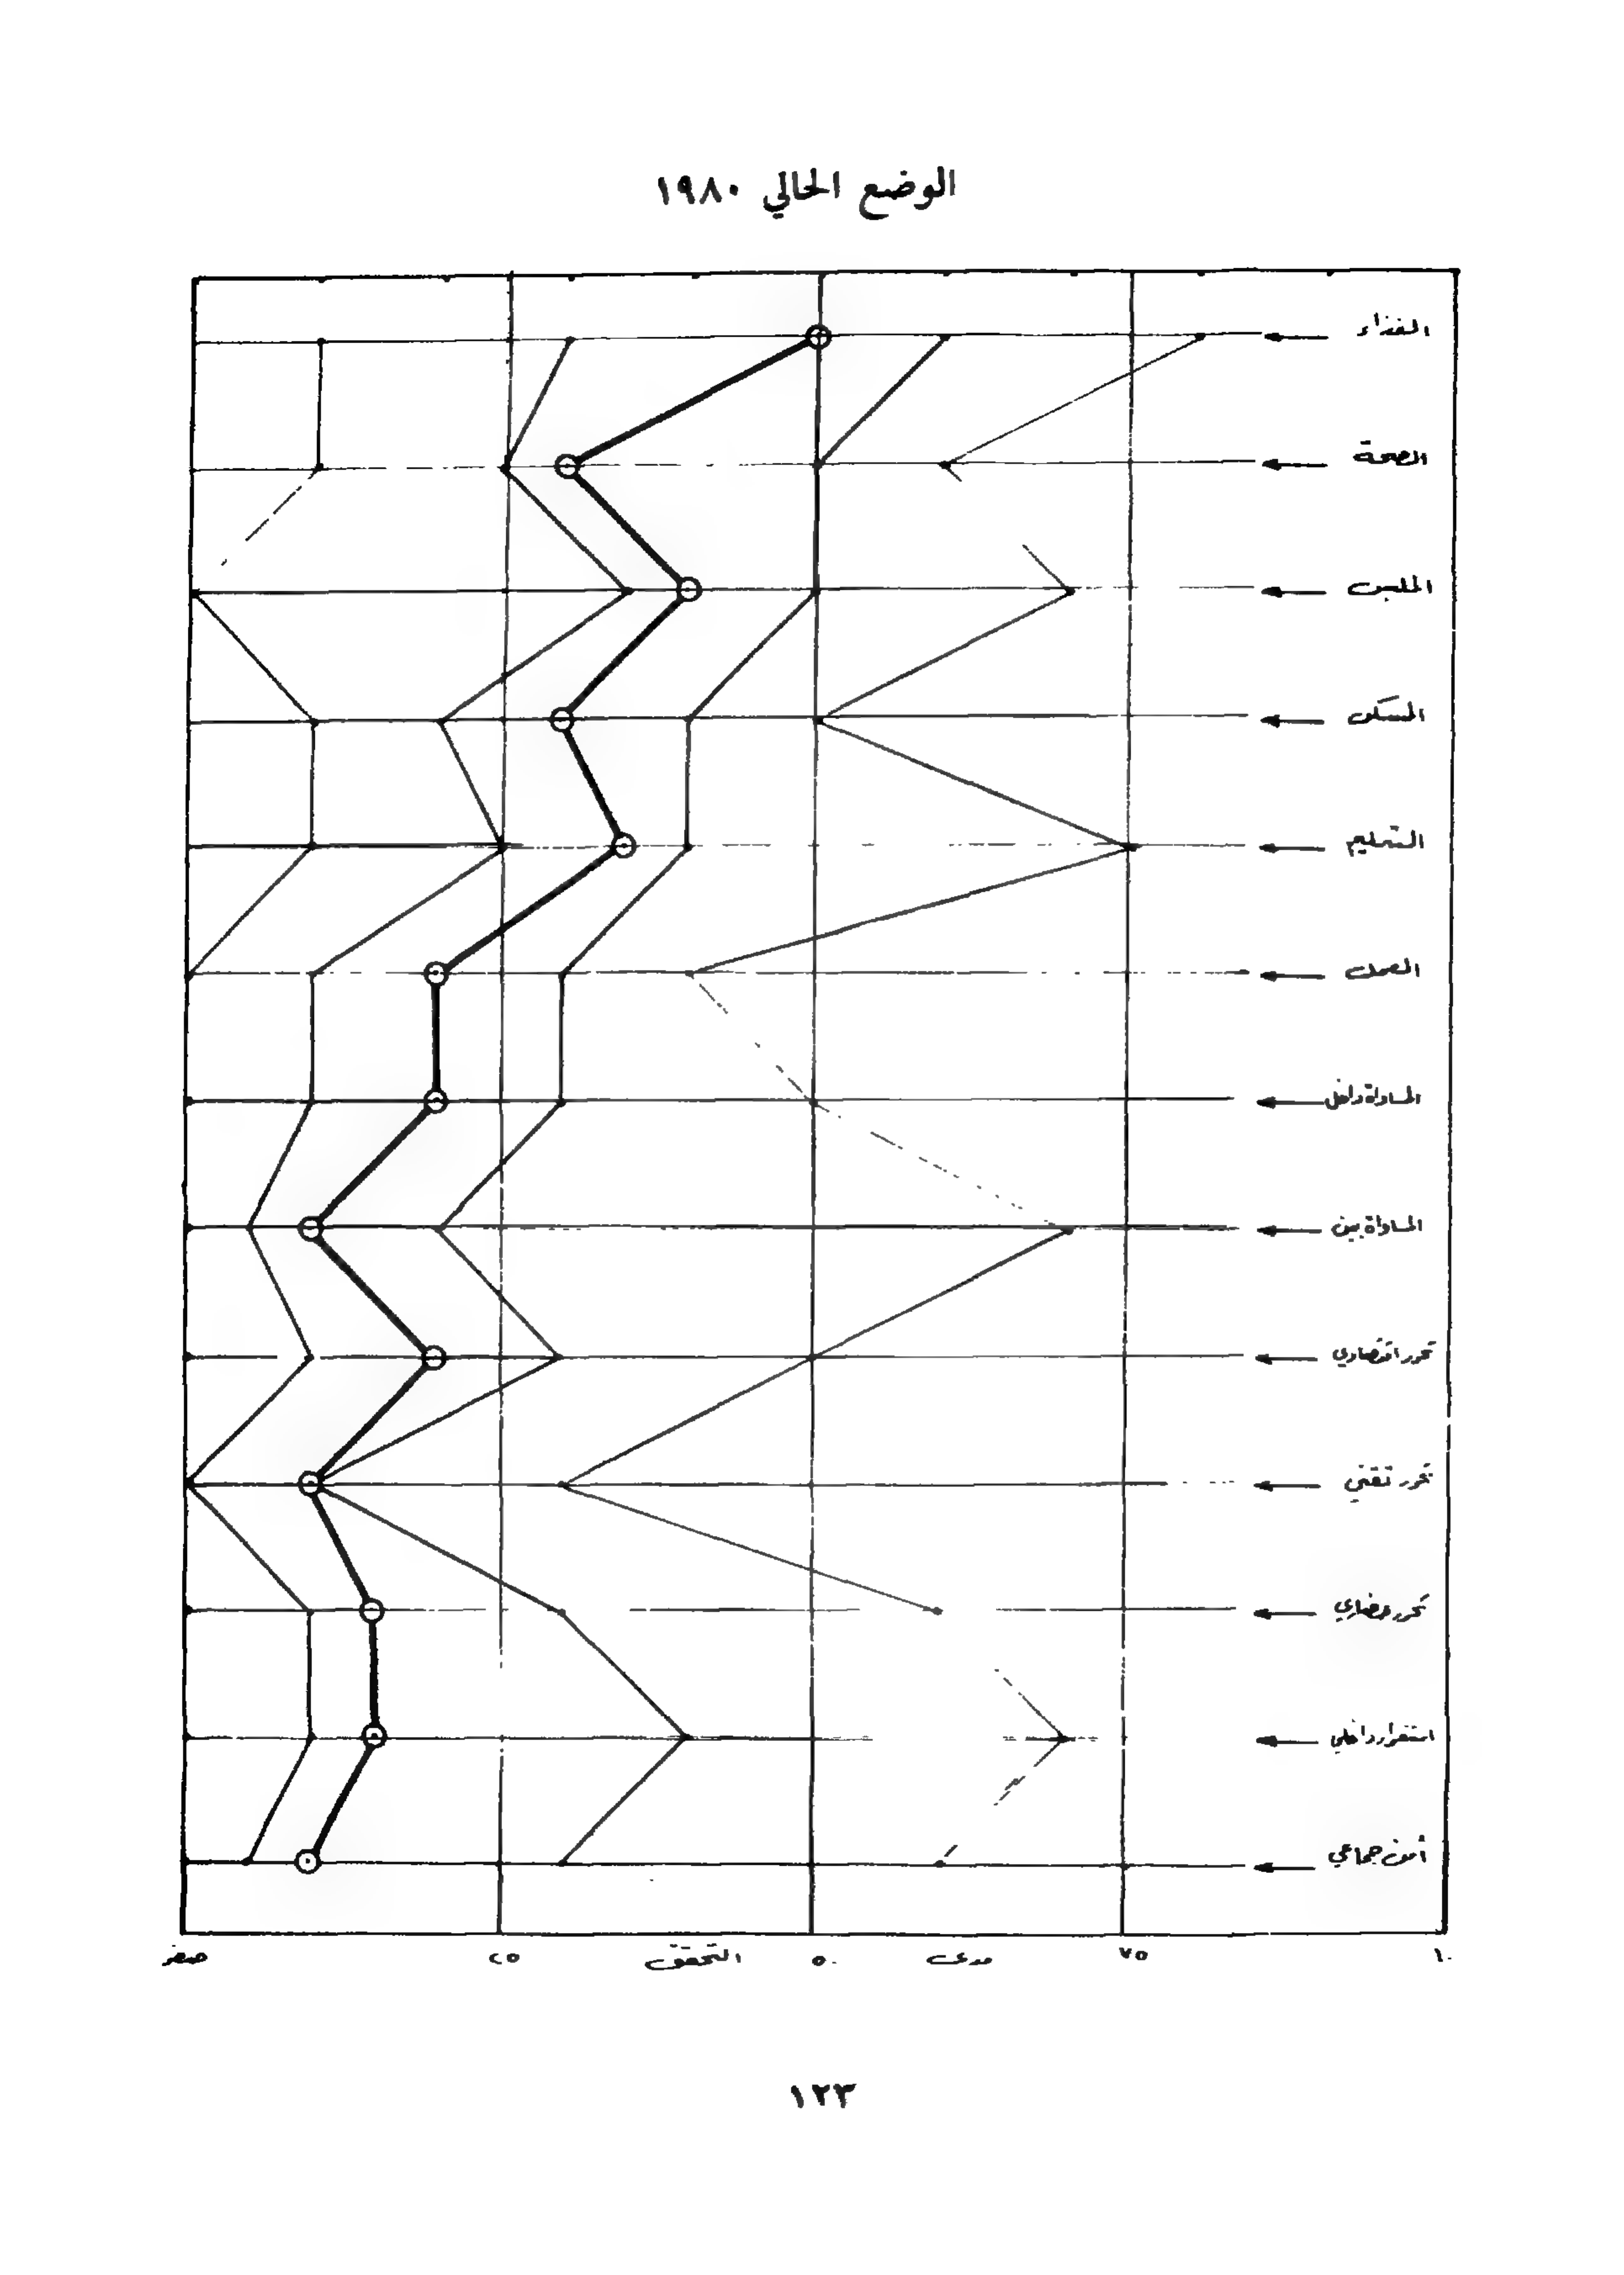 الوضع الحالي ١٩٨٠
الغذاء
الصحة
الملبس
المسكن
التعليم
العمل
المساواة داخل
المساواة بين
تحرر اقتصادي
تحرر تقني
تحرر حضاري
استقرار داخلي
أمن جماعي
صفر ٢٥ التحقق ٥٠ مدى ٧٥ ١٠
١٢٣